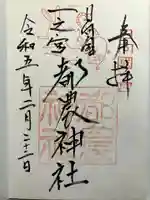 奉拝
日向国
一之宮都農神社
令和五年二月二十二日